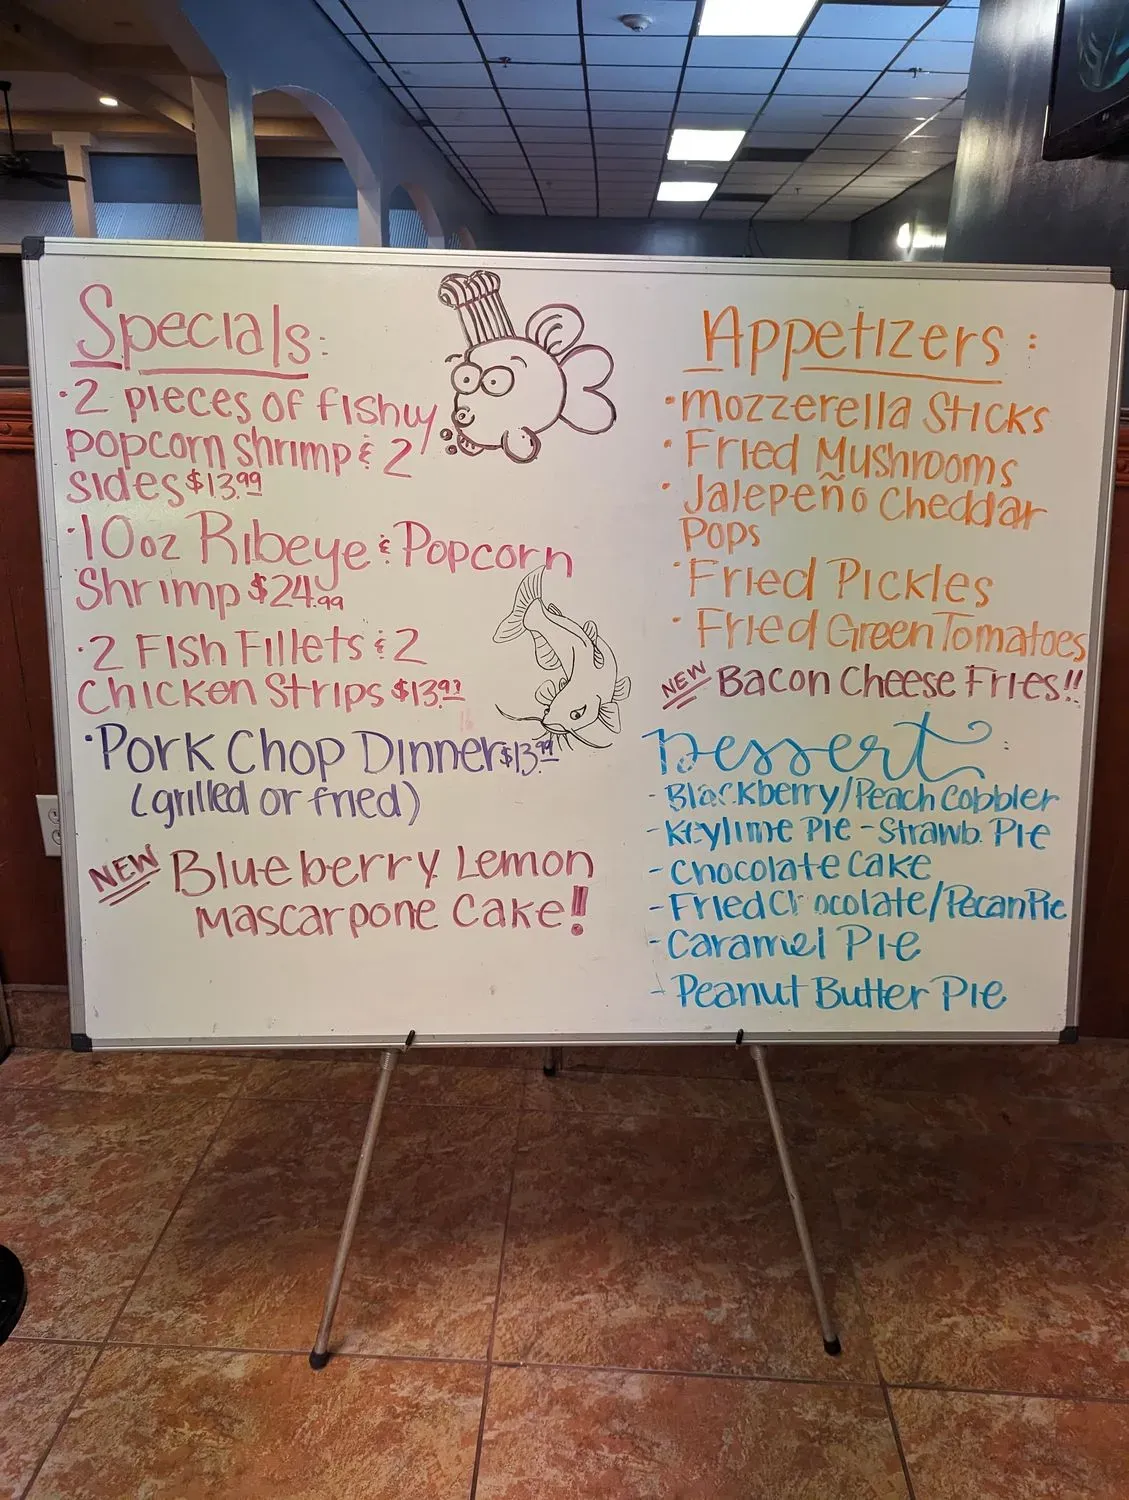 Specials:
·2 pieces of fish w/
popcorn shrimp & 2
sides $13.99
·10oz Ribeye & Popcorn
Shrimp $24.99
·2 Fish Fillets & 2
Chicken Strips $13.99
·Pork Chop Dinner $13.99
(grilled or fried)
NEW Blueberry Lemon
Mascarpone Cake!!
Appetizers:
·Mozzerella Sticks
·Fried Mushrooms
·Jalepeño Cheddar
Pops
·Fried Pickles
·Fried Green Tomatoes
NEW Bacon Cheese Fries!!
Dessert:
-Blackberry/Peach Cobbler
-Keylime Pie -Strawb. Pie
-Chocolate Cake
-Fried Chocolate/Pecan Pie
-Caramel Pie
-Peanut Butter Pie